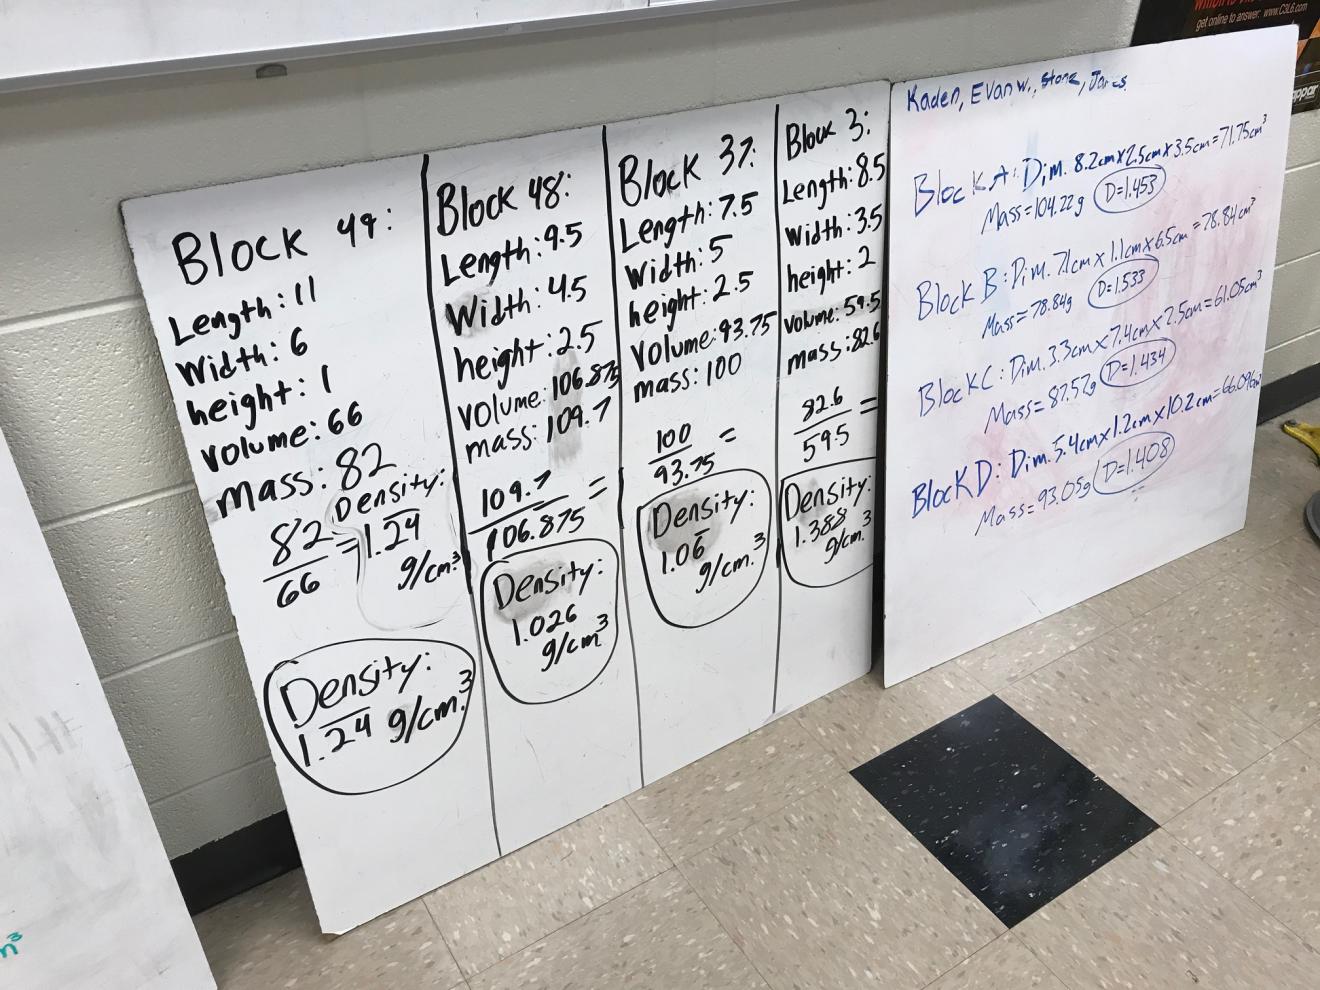 get online to answer: www.C3L6.com
Block 49:
Length: 11
Width: 6
height: 1
Volume: 66
mass: 82
82/66 =
Density:
1.24
g/cm³
Density:
1.24 g/cm.³
Block 48:
Length: 9.5
Width: 4.5
height: 2.5
volume: 106.875
mass: 109.7
109.7/106.875 =
Density:
1.026
g/cm³
Block 37:
Length: 7.5
Width: 5
height: 2.5
Volume: 93.75
mass: 100
100/93.75 =
Density:
1.06
g/cm.³
Block 3:
Length: 8.5
Width: 3.5
height: 2
volume: 59.5
mass: 82.6
82.6/59.5 =
Density:
1.388
g/cm.³
Kaden, Evan W., Stone,
Block A: Dim. 8.2cm x 2.5cm x 3.5cm = 71.75cm³
Mass = 104.22g D=1.453
Block B: Dim. 7.1cm x 1.1cm x 6.5cm = 78.84cm³
Mass = 78.84g D=1.533
Block C: Dim. 3.3cm x 7.4cm x 2.5cm = 61.05cm³
Mass = 87.52g D=1.434
Block D: Dim. 5.4cm x 1.2cm x 10.2cm = 66.096cm³
Mass = 93.05g D=1.408